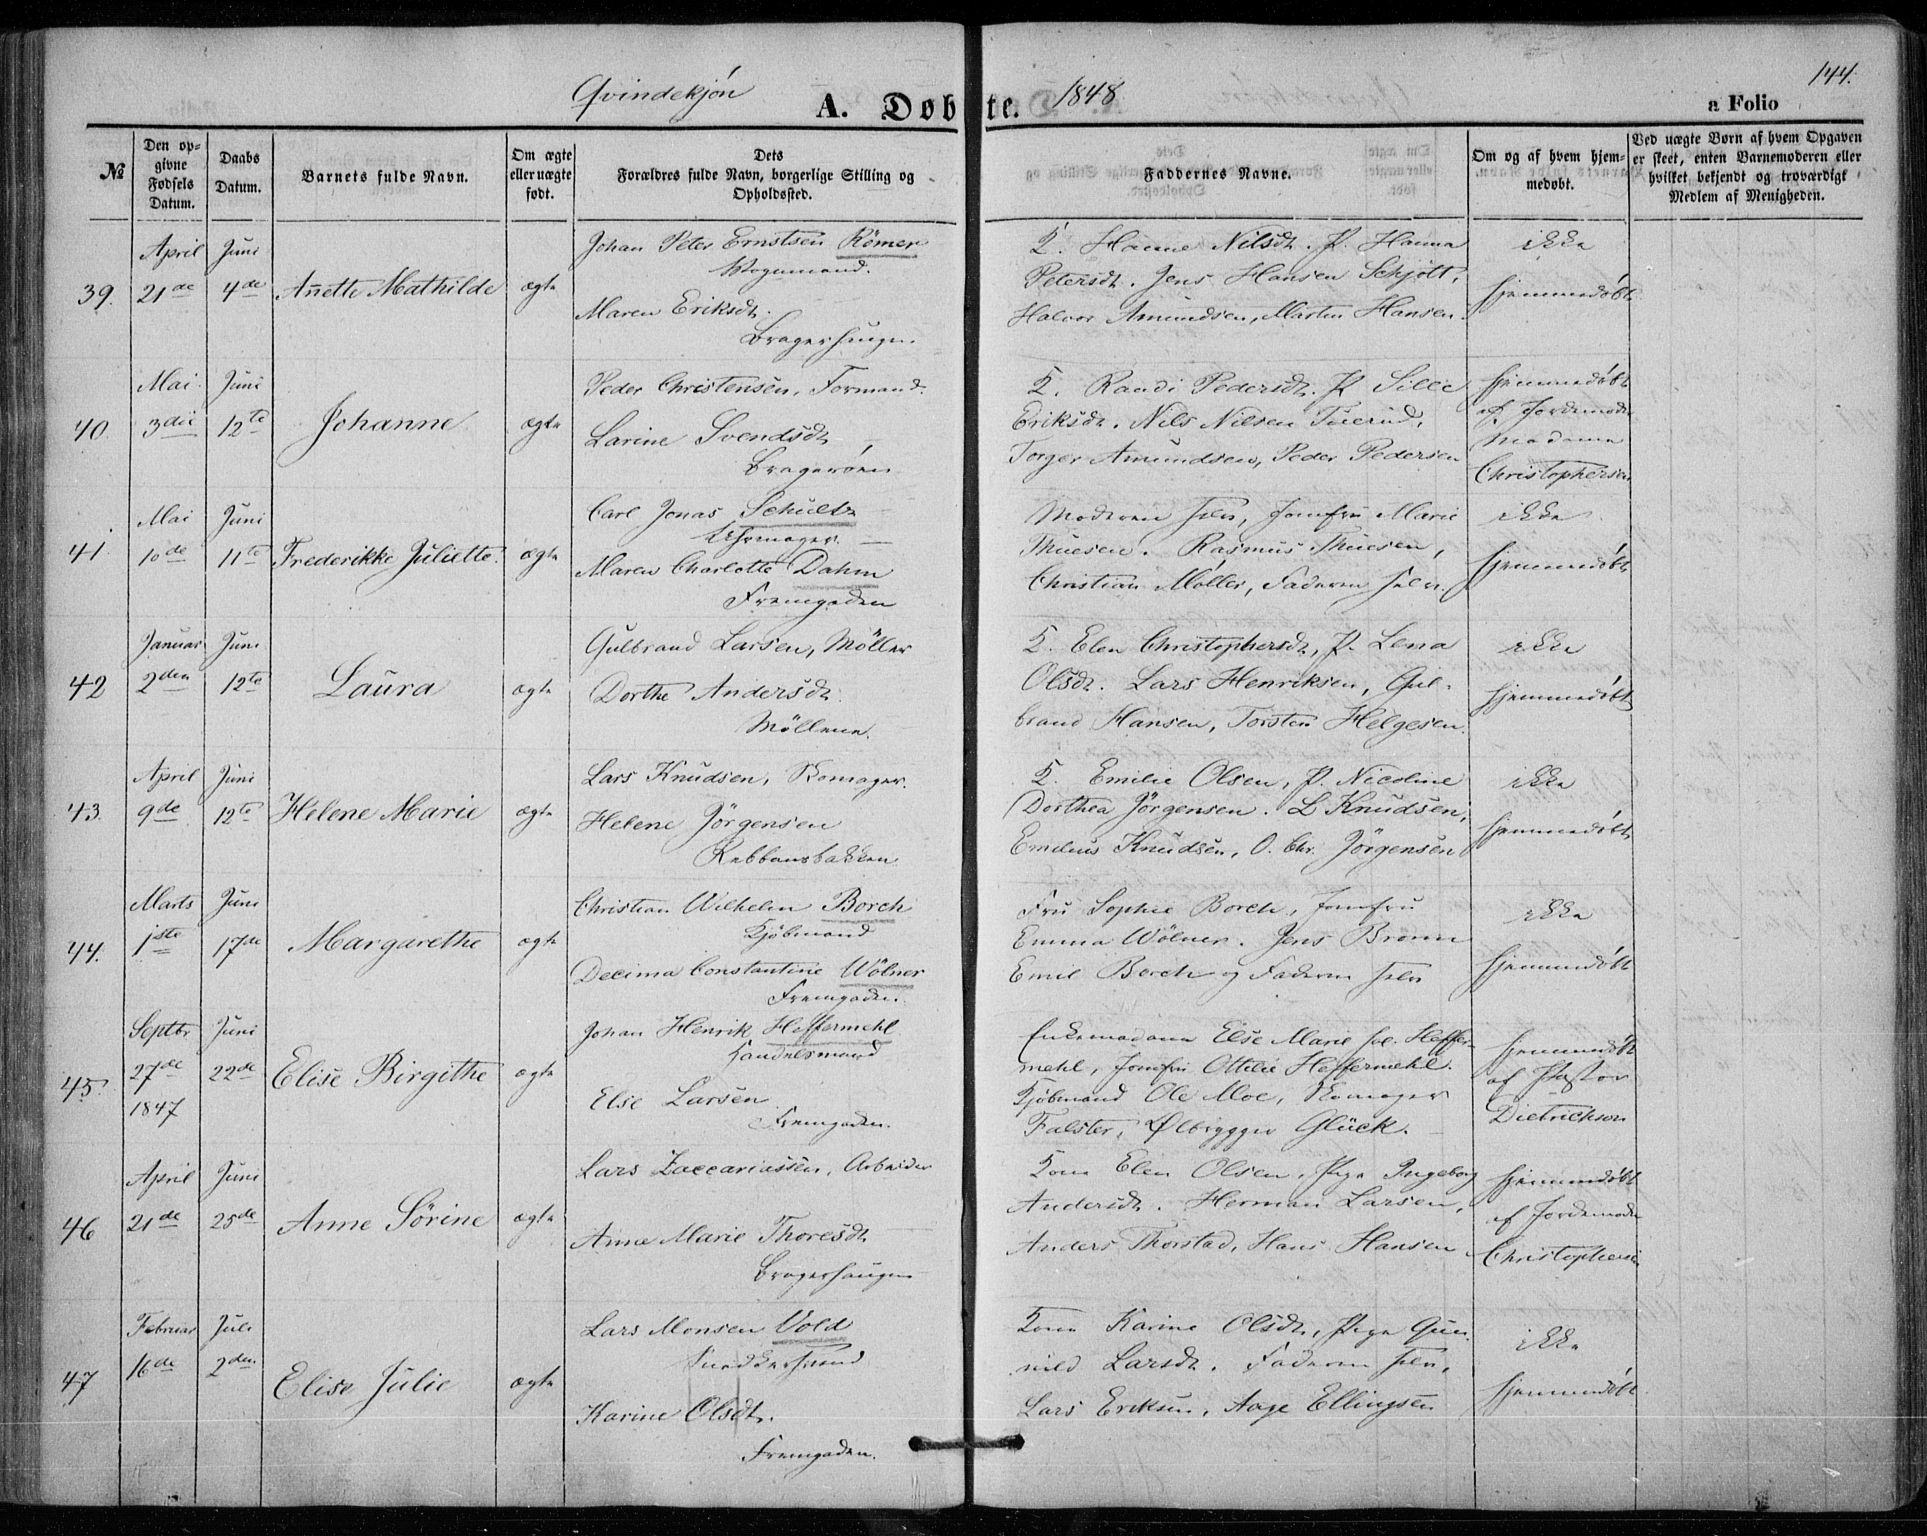 144.
Qvindekjön
A. Døbte.
1848
a Folio
№
Den op-
givne
Fødsels
Datum.
Daabs
Datum.
Barnets fulde Navn.
Om ægte
eller uægte
født.
Dets
Forældres fulde Navn, borgerlige Stilling og
Opholdssted.
Faddernes Navne.
Om og af hvem hjem-
medøbt.
Ved uægte Børn af hvem Opgaven
er skeet, enten Barnemoderen eller
hvilket bekjendt og troværdigt
Medlem af Menigheden.
39.
April
21de
Juni
4de
Anette Mathilde
ægte
Johan Peter Ernstsen Römer
Vognmand.
Maren Eriksdt.
Bragerhaugen.
K. Hanne Nilsdt. P. Hanna
Petersdt. Jens Hansen Schjött,
Halvor Amundsen, Martin Hansen.
ikke
hjemmedøbt
40
Mai
3die
Juni
12te
Johanne
ægte
Peder Christensen, Formand.
Larine Svendsdt.
Bragerøen
K. Randi Pedersdt. P. Sille
Eriksdt. Nils Nilsen
Torger Amundsen, Peder Pedersen
hjemmedøbt
af Jordemoder
Madame
Christophersen
41.
Mai
10de
Juni
11te
Frederikke Juliette.
ægte
Carl Jonas Schultz
Uhrmager.
Maren Charlotte Dahm
Fremgaden
Moderen selv, Jomfru Marie
Thuesen. Rasmus Thuesen,
Christian Møller, Faderen selv.
ikke
hjemmedøbt
42
Januar
2den
Juni
12te
Laura
ægte
Gulbrand Larsen, Möller
Dorthe Andersdt.
Möllene.
K. Elen Christophersdt, P. Lena
Olsdt. Lars Henriksen, Gul-
brand Hansen, Torsten Helgesen.
ikke
hjemmedøbt
43.
April
9de
Juni
12te
Helene Marie
ægte
Lars Knudsen, Skomager.
Helene Jörgensen
Rebbansbakken
K. Emilie Olsen, P. Nicoline
Dorthea Jörgensen. L Knudsen,
Emilius Knudsen, O. Chr. Jörgensen
ikke
hjemmedøbt
44.
Marts
1ste
Juni
17de
Margarethe
ægte
Christian Wilhelm Borch
Kjöbmand
Decima Constantine Wölner
Fremgaden.
Fru Sophie Borch, Jomfru
Emma Wölner. Jens Bronn
Emil Borch og Faderen selv
ikke
hjemmedøbt
45.
Septbr
27de
1847
Juni
22de
Elise Birgithe
ægte
Johan Henrik Heffermehl
Handelsmand
Else Larsen
Fremgaden.
Enkemadame Else Marie sal. Heffer-
mehl, Jomfru Ottilie Heffermehl.
Kjöbmand Ole Moe, Skomager
Falster, Ølbrygger Glück.
hjemmedøbt
af Pastor
Dietrichson
46
April
21de
Juni
25de
Anne Sörine
ægte
Lars Zaccariassen, Arbeider
Anne Marie Thoresdt.
Bragerhaugen
Kone Elen Olsen, Pige Ingeborg
Andersdt. Herman Larsen,
Anders Thorstad, Hans Hansen
hjemmedøbt
af Jordemoder
Christophersen
47
Februar
16de
Juli
2den
Elise Julie
ægte
Lars Monsen Vold
Snedkersvend
Karine Olsdt.
Fremgaden.
Kone Karine Olsdt, Pige Gun-
nild Larsdt. Faderen selv,
Lars Eriksen, Aage Ellingsen
ikke
hjemmedøbt